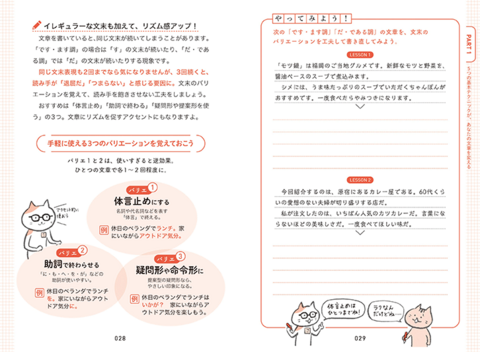 イレギュラーな文末も加えて、リズム感アップ！
文章を書いていると、同じ文末が続いてしまうことがあります。
「です・ます調」の場合は「す」の文末が続いたり、「だ・であ
る調」では「だ」の文末が続いたりする現象です。
同じ文末表現も2回までなら気になりませんが、3回続くと、
読み手が「退屈だ」「つまらない」と感じる要因に。文末のバリ
エーションを覚えて、読み手を飽きさせない工夫をしましょう。
おすすめは「体言止め」「助詞で終わる」「疑問形や提案形を使
う」の3つ。文章にリズムを促すアクセントにもなりますよ。
手軽に使える3つのバリエーションを覚えておこう
バリエ1と2は、使いすぎると逆効果。
ひとつの文章で各1～2回程度に。
バリエ 1
体言止めにする
名詞や代名詞などを表す
「体言」で終える。
例 休日のベランダでランチ。家に
いながらアウトドア気分。
バリエ 2
助詞で終わらせる
「に・も・へ・を・が」などの
助詞が使いやすい。
例 休日のベランダでランチ
を。家にいながらアウト
ドア気分に。
バリエ 3
疑問形や命令形に
提案型の疑問形なら、
やさしい印象になる。
例 休日のベランダでランチは
いかが？ 家にいながらア
ウトドア気分を楽しもう。
028
やってみよう！
次の「です・ます調」「だ・である調」の文章を、文末の
バリエーションを工夫して書き直してみよう。
LESSON 1
「モツ鍋」は福岡のご当地グルメです。新鮮なモツと野菜を、
醤油ベースのスープで煮込みます。
シメには、うま味たっぷりのスープでいただくちゃんぽんが
おすすめです。一度食べたらやみつきになります。
LESSON 2
今回紹介するのは、原宿にあるカレー屋である。60代くら
いの愛想のない夫婦が切り盛りする店だ。
私が注文したのは、いちばん人気のカツカレーだ。言葉にな
らないほどの美味しさだ。一度食べてほしい味だ。
体言止めは
ひとつまでね！
ラクなん
だけどね…
029
PART 1